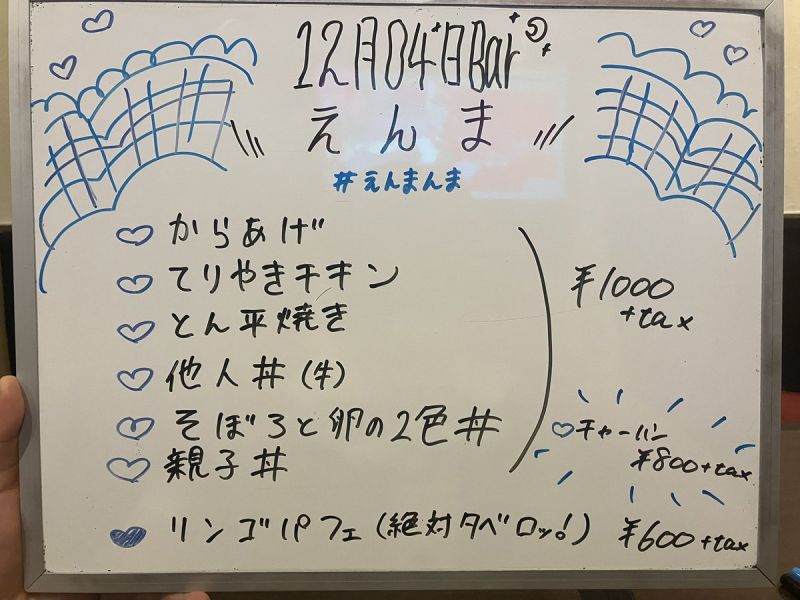 12月04日Bar
えんま
#えんまんま
からあげ
てりやきチキン
とん平焼き
他人丼(牛)
そぼろと卵の2色丼
親子丼
¥1000
+tax
チャーハン
¥800+tax
リンゴパフェ(絶対タベロッ!) ¥600+tax